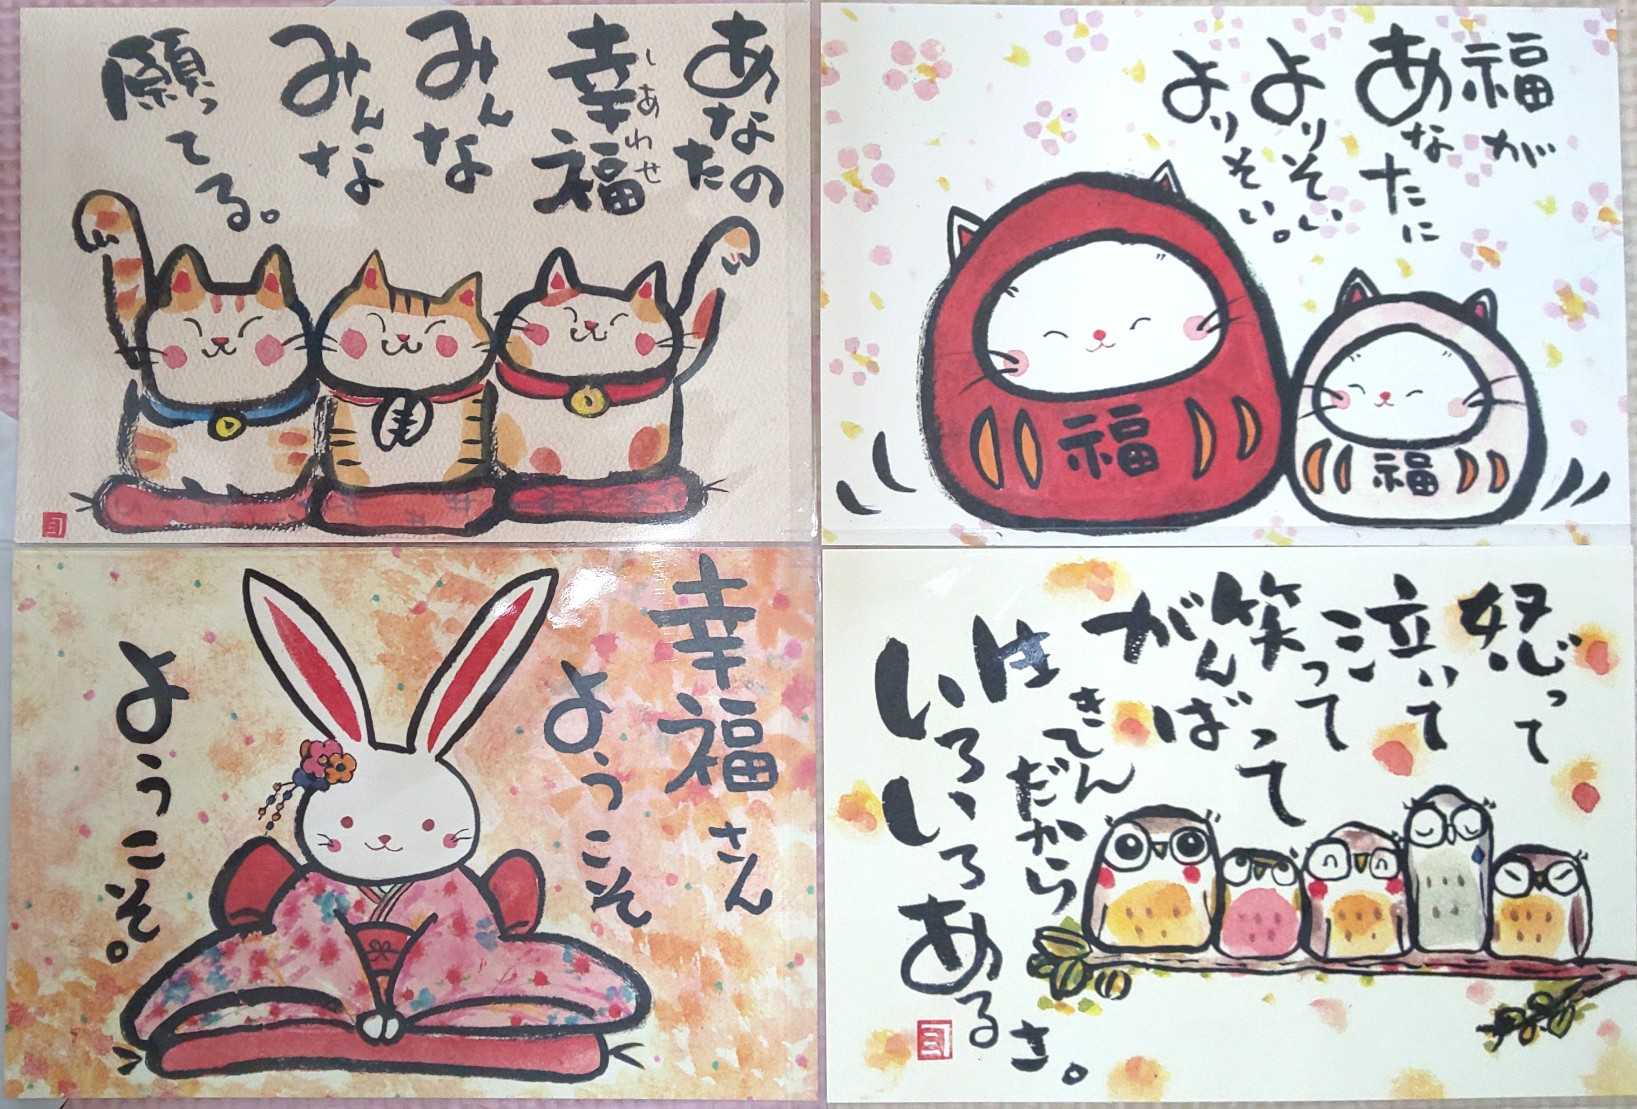 あなたの
幸福
しあわせ
みんな
みんな
願ってる。
福が
あなたに
よりそい
よりそい。
福
福
幸福さん
ようこそ
ようこそ。
怒って
泣いて
笑って
がんばって
生きてんだから
いろいろあるさ。